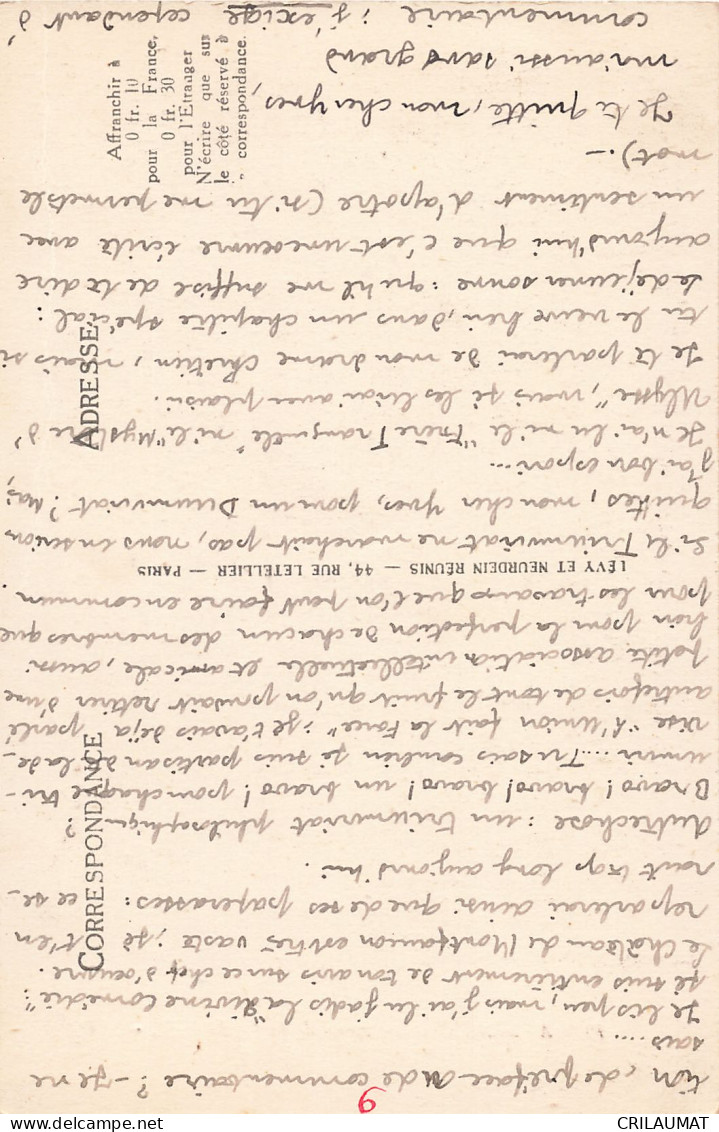 tion, de préface ou de commentaire ? - Je ne
sais.....
Je lis peu, mais j'ai lu jadis la "divine comédie" :
je suis entièrement de ton avis sur ce chef d'œuvre.
Le château de Montfaucon est très vaste ; je t'en
reparlerai ainsi que de ses paperasses : ce se-
rait trop long aujourd'hui.
Autre chose : un triumvirat philosophique ?
Bravo ! bravo ! un bravo ! pour chaque tri-
umvir.... Tu sais combien je suis partisan de la de-
vise "l'Union fait la Force" ; je t'avais déjà parlé
autrefois de tout le fruit qu'on pouvait retirer d'une
petite association intellectuelle et amicale, aussi
bien pour la perfection de chacun des membres que
pour les travaux que l'on peut faire en commun
Si le Triumvirat ne marchait pas, nous en serions
quittes, mon cher Yves, pour un Duumvirat ? Mais
j'ai bon espoir...
Je n'ai lu ni le "Frère Tranquille" ni le "Mystère d'
Ulysse", mais je les lirai avec plaisir.
Je te parlerai de mon drame chrétien, mais si
tu le veux bien, dans un chapitre spécial :
Le déjeuner sonne : qu'il me suffise de te dire
aujourd'hui que c'est une œuvre écrite avec
un sentiment d'apôtre (si tu me permets le
mot).-
Je te quitte, mon cher Yves,
moi aussi sans grand
commentaire ; j'exige cependant d'
CORRESPONDANCE
ADRESSE
LÉVY ET NEURDEIN RÉUNIS — 44, RUE LETELLIER — PARIS
Affranchir à
0 fr. 10
pour la France,
0 fr. 30
pour l'Etranger
N'écrire que sur
le côté réservé à
" correspondance.
9
delcampe.net
CRILAUMAT